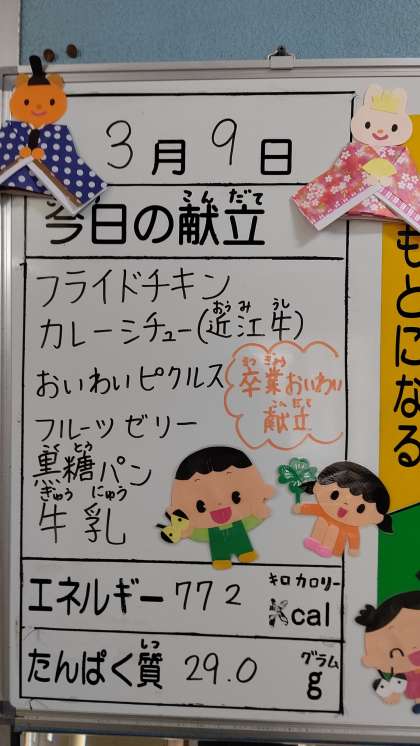 3月9日
こんだて
今日の献立
フライドチキン
おうみうし
カレーシチュー(近江牛)
おいわいピクルス
そつぎょう
卒業おいわい
こんだて
献立
フルーツゼリー
こくとう
黒糖パン
ぎゅうにゅう
牛乳
エネルギー 772
キロカロリー
kcal
しつ
たんぱく質 29.0
グラム
g
もとになる